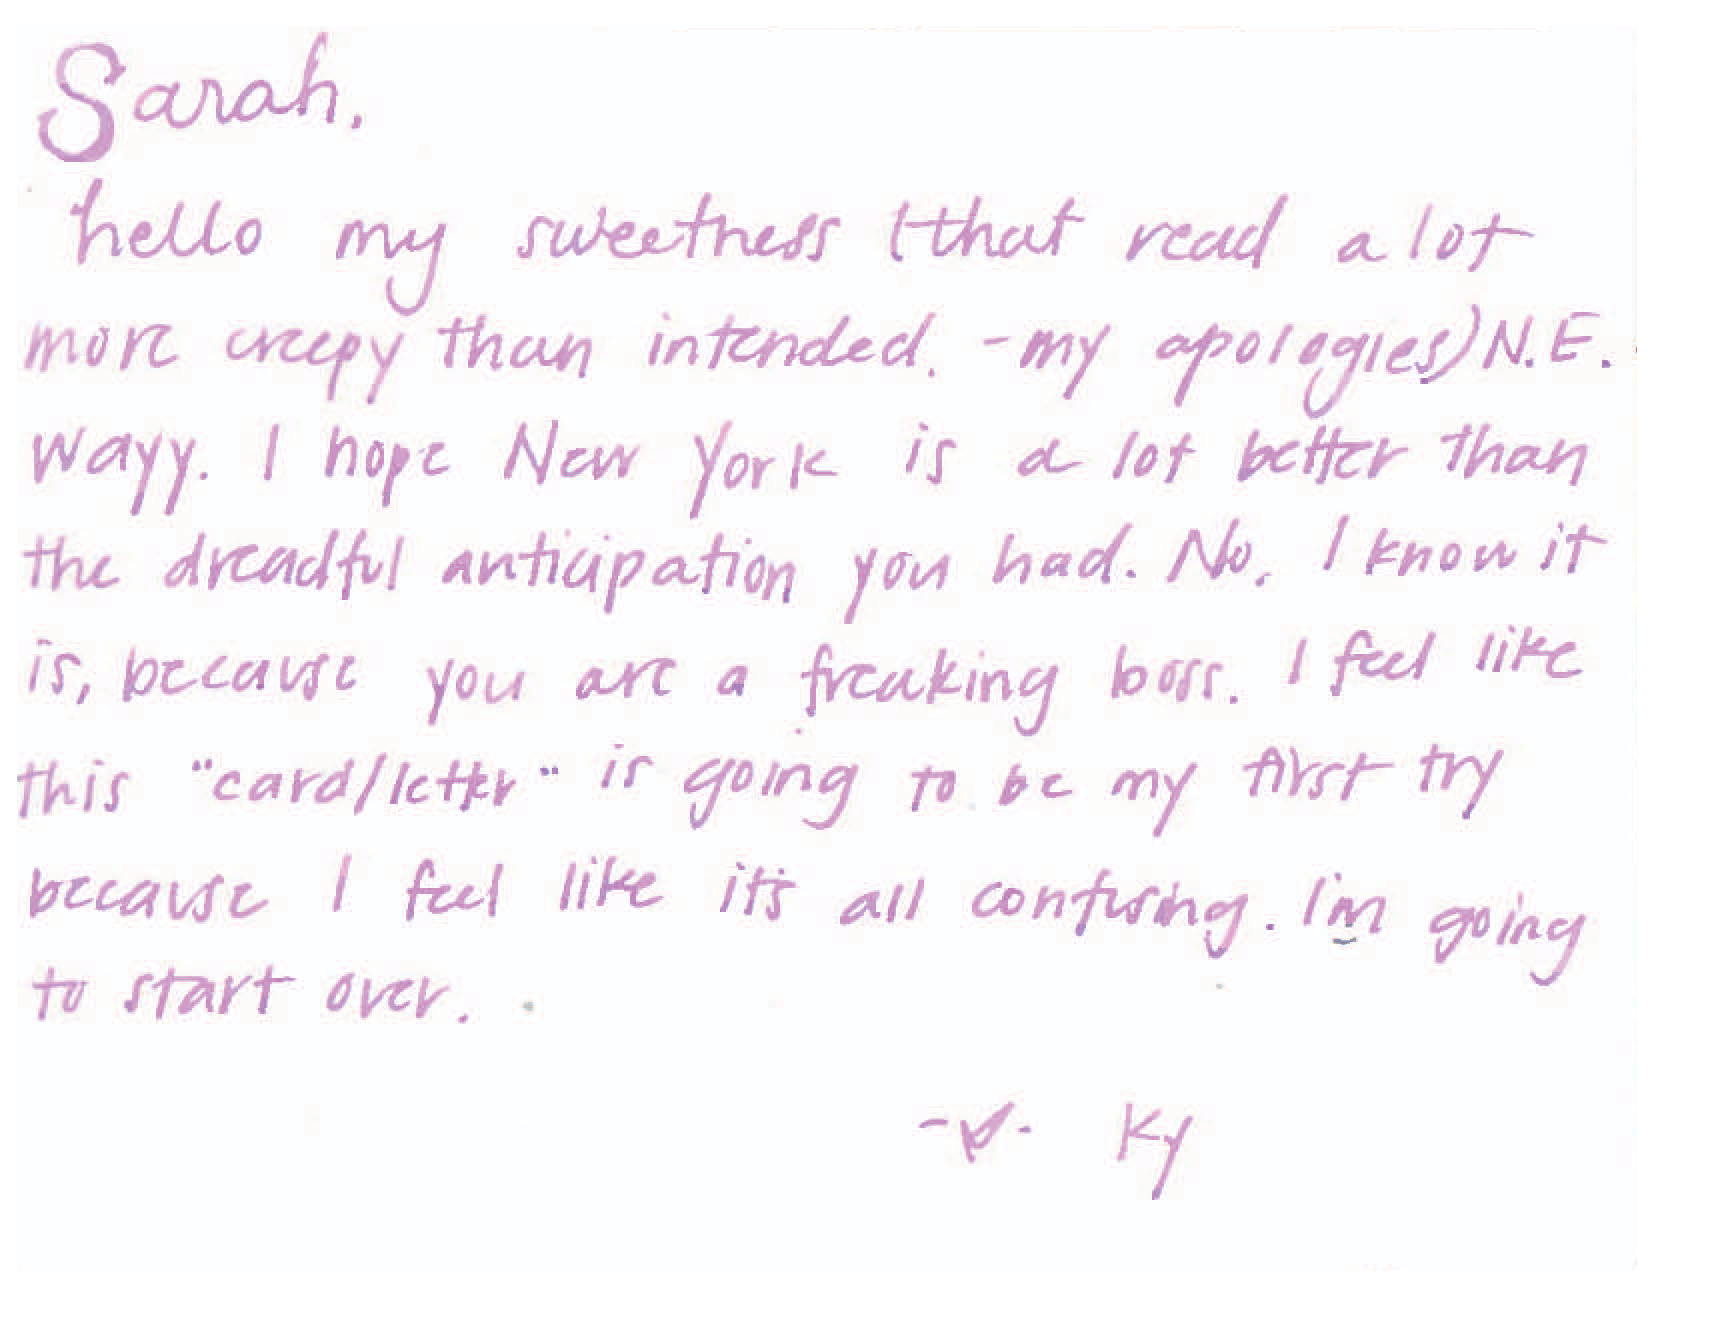 Sarah,
hello my sweetness (that read a lot
more creepy than intended. -my apologies) N.E.
wayy. I hope New York is a lot better than
the dreadful anticipation you had. No, I know it
is, because you are a freaking boss. I feel like
this "card/letter" is going to be my first try
because I feel like it's all confusing. I'm going
to start over.
Ky